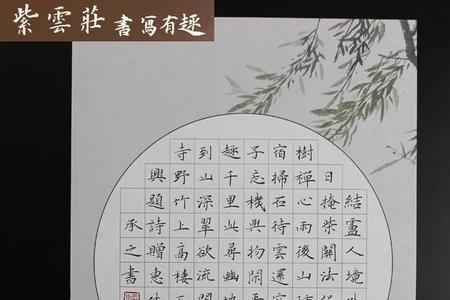 紫雲莊 書寫有趣
結廬人境
日掩柴關法
樹禪心雨後山
宿掃石待雲還
子忘機與物閑
趣千里此尋幽地
到山深翠欲流
寺野竹上高樓
興題詩贈惠休
承之書